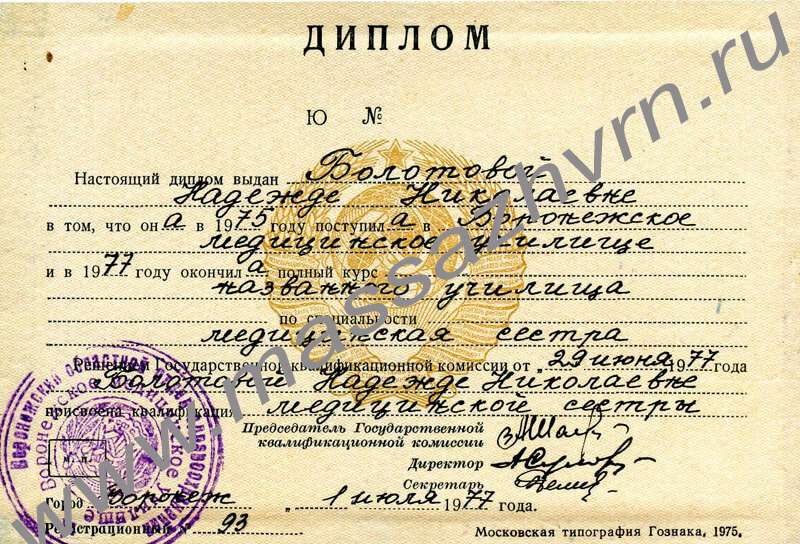 ДИПЛОМ
Ю №
Настоящий диплом выдан Болотовой
Надежде Николаевне
в том, что она в 1975 году поступила в Воронежское
медицинское училище
и в 1977 году окончила полный курс
названного училища
по специальности
медицинская сестра
Решением Государственной квалификационной комиссии от „29 июня 1977 года
Болотовой Надежде Николаевне
присвоена квалификация медицинской сестры
Председатель Государственной
квалификационной комиссии
Директор
Секретарь
м. п.
Город Воронеж „1 июля 1977 года.
Регистрационный № 93
Московская типография Гознака, 1975.
www.massazhvrn.ru